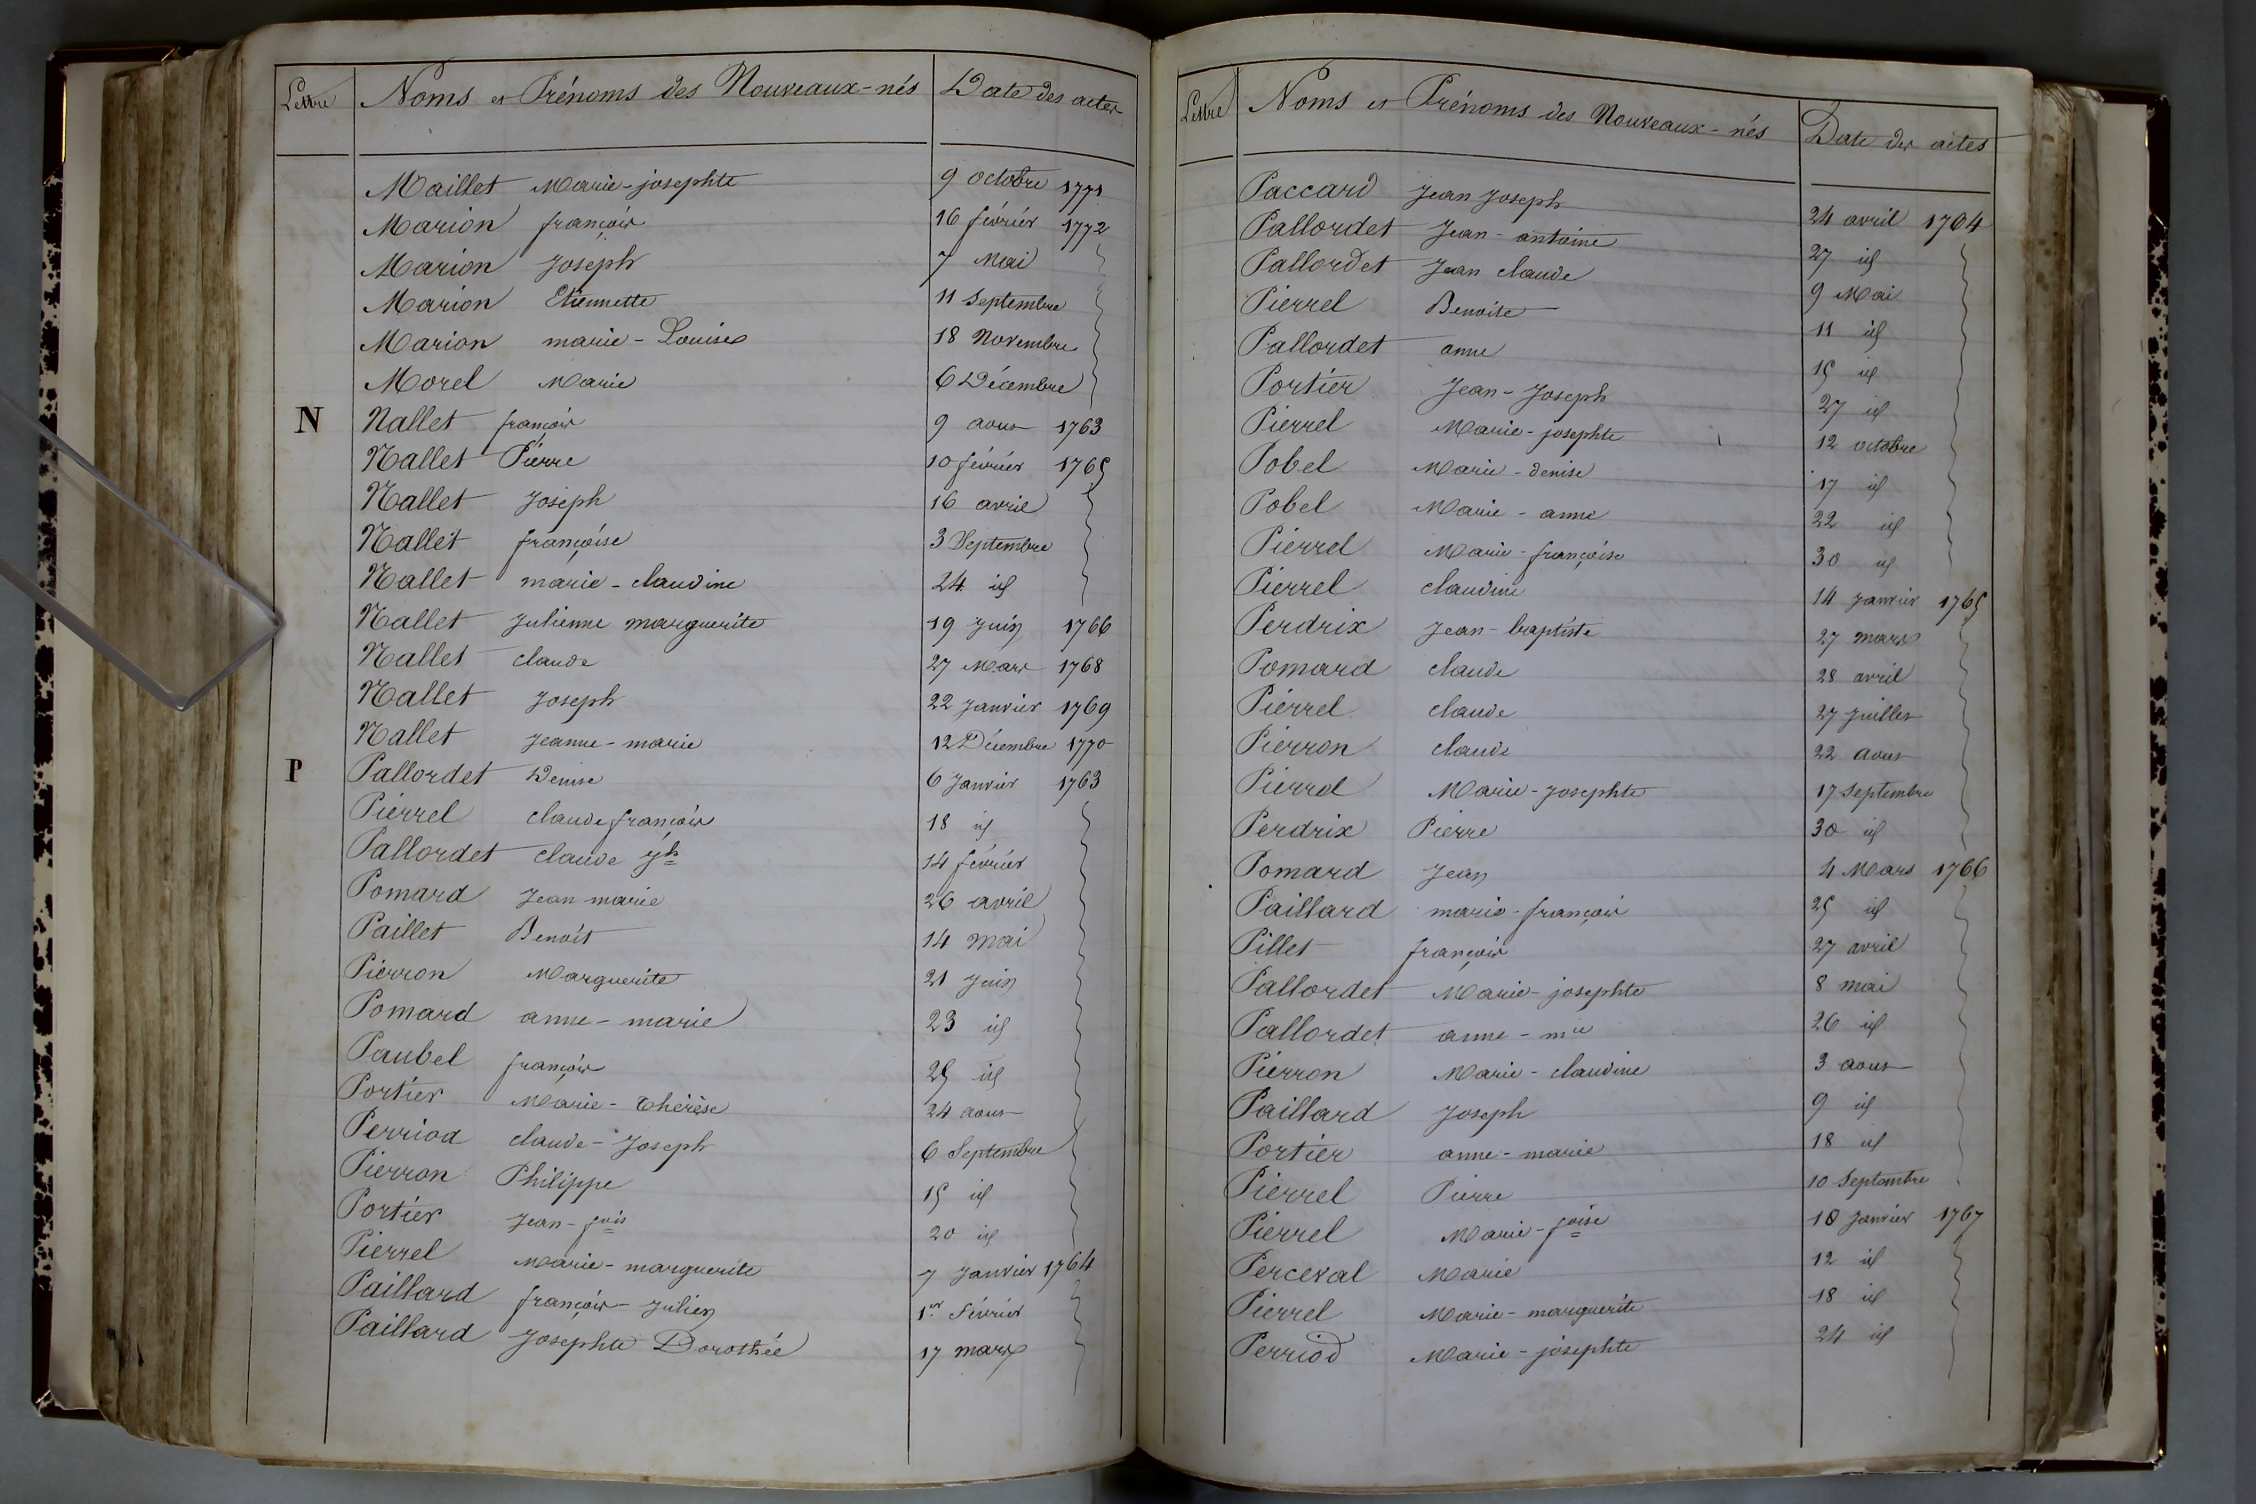 Lettre Noms et Prénoms des Nouveaux-nés Date des actes
Maillet Marie-josephte 9 octobre 1771
Marion françois 16 février 1772
Marion Joseph 7 Mai
Marion Etiennette 11 Septembre
Marion marie-Louise 18 Novembre
Morel Marie 6 Décembre
N Nallet françois 9 aout 1763
Nallet Pierre 10 février 1765
Nallet Joseph 16 avril
Nallet françoise 3 Septembre
Nallet marie-claudine 24 id
Nallet Julienne marguerite 19 Juin 1766
Nallet claude 27 Mars 1768
Nallet Joseph 22 Janvier 1769
Nallet Jeanne-marie 12 Décembre 1770
P Pallordet Denise 6 Janvier 1763
Pierrel claude françois 18 id
Pallordet claude jh 14 février
Pomard Jean marie 26 avril
Paillet Benoit 14 Mai
Pierron Marguerite 21 Juin
Pomard anne-marie 23 id
Paubel françois 25 id
Portier Marie-Thérèse 24 aout
Perriod claude-Joseph 6 Septembre
Pierron Philippe 15 id
Portier Jean-fois 20 id
Pierrel Marie-marguerite 7 Janvier 1764
Paillard françois-Julien 1er Février
Paillard Josephte Dorothée 17 mars
Lettre Noms et Prénoms des Nouveaux-nés Date des actes
Paccard Jean Joseph 24 avril 1764
Pallordet Jean-antoine 27 id
Pallordet Jean claude 9 Mai
Pierrel Benoite 11 id
Pallordet anne 15 id
Portier Jean-Joseph 27 id
Pierrel Marie-josephte 12 octobre
Pobel Marie-denise 17 id
Pobel Marie-anne 22 id
Pierrel Marie-françoise 30 id
Pierrel claudine 14 Janvier 1765
Perdrix Jean-baptiste 27 mars
Pomard claude 28 avril
Pierrel claude 27 Juillet
Pierron claude 22 aout
Pierrel Marie-Josephte 17 Septembre
Perdrix Pierre 30 id
Pomard Jean 4 Mars 1766
Paillard marie-françois 25 id
Pillet françois 27 avril
Pallordet Marie-josephte 8 mai
Pallordet anne-mie 26 id
Pierron Marie-claudine 3 aout
Paillard Joseph 9 id
Portier anne-marie 18 id
Pierrel Pierre 10 Septembre
Pierrel Marie-foise 10 Janvier 1767
Perceval Marie 12 id
Pierrel Marie-marguerite 18 id
Perriod Marie-josephte 24 id